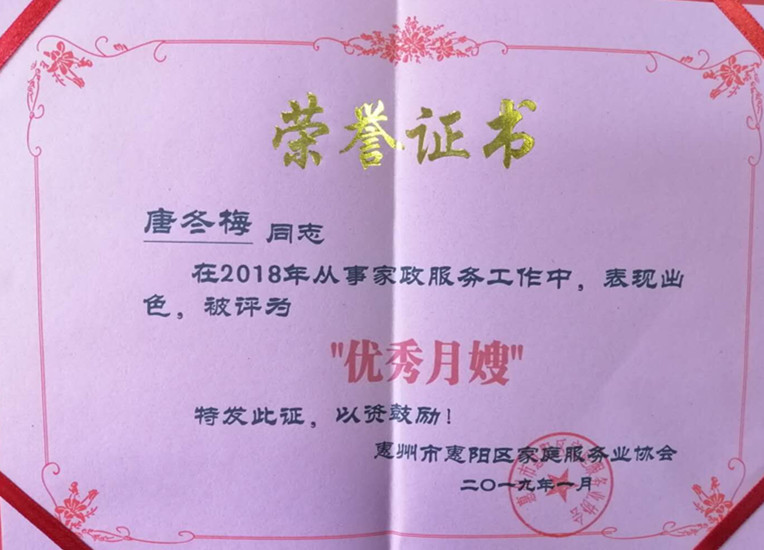 荣誉证书
唐冬梅 同志
在2018年从事家政服务工作中，表现出
色，被评为
"优秀月嫂"
特发此证，以资鼓励！
惠州市惠阳区家庭服务业协会
二〇一九年一月